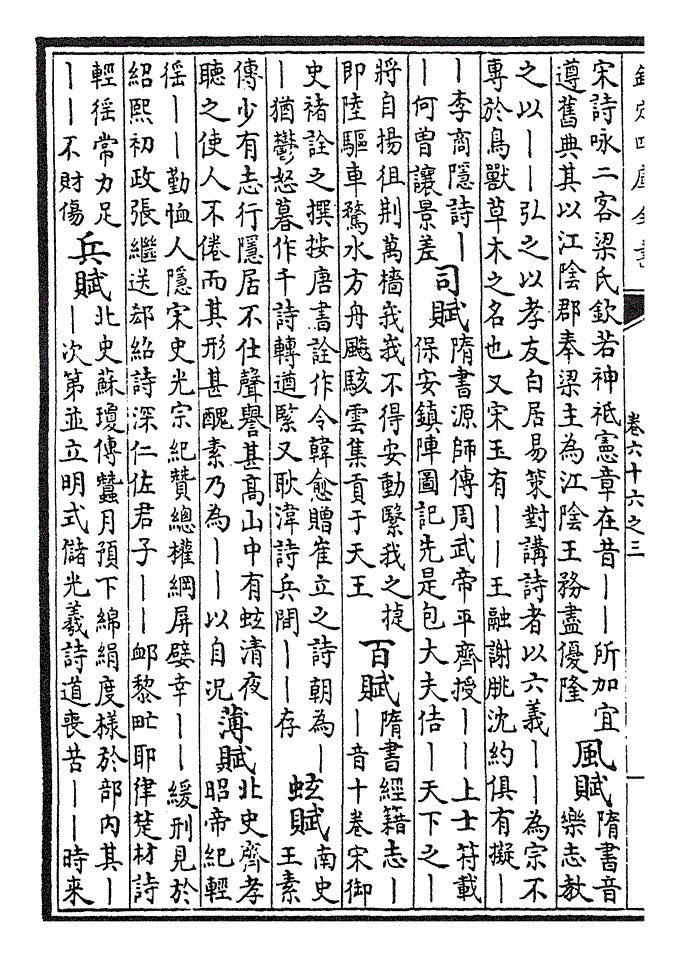 欽定四庫全書
卷六十六之三
宋詩咏二客梁氏欽若神祗憲章在昔丨丨所加宜
遵舊典其以江陰郡奉梁主為江陰王務盡優隆
風賦
隋書音
樂志教
之以丨丨弘之以孝友白居易策對講詩者以六義丨丨為宗不
專於鳥獸草木之名也又宋玉有丨丨王融謝朓沈約俱有擬丨
丨李商隱詩丨
丨何曾讓景差
司賦
隋書源師傳周武帝平齊授丨丨上士符載
保安鎮陣圖記先是包大夫佶丨天下之丨
將自揚徂荆萬檣峩峩不得安動繄我之㨗
即陸驅車騖水方舟颷駭雲集貢于天王
百賦
隋書經籍志丨
丨音十卷宋御
史褚詮之撰按唐書詮作令韓愈贈崔立之詩朝為丨
丨猶鬱怒暮作千詩轉遒緊又耿湋詩兵間丨丨存
蚿賦
南史
王素
傳少有志行隱居不仕聲譽甚高山中有蚿清夜
聽之使人不倦而其形甚醜素乃為丨丨以自况
薄賦
北史齊孝
昭帝紀輕
徭丨丨勤恤人隱宋史光宗紀贊總權綱屏嬖幸丨丨緩刑見於
紹熙初政張繼送郄紹詩深仁佐君子丨丨卹黎甿耶律楚材詩
輕徭常力足
丨丨不財傷
兵賦
北史蘇瓊傳蠶月預下綿絹度樣於部內其丨
丨次第並立明式儲光羲詩道喪苦丨丨時来